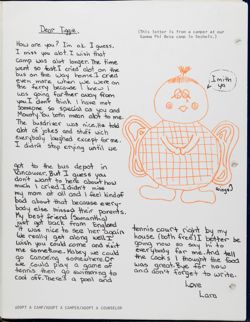 Dear Iggie,
(This letter is from a camper at our
Gamma Phi Beta camp in Sechelt.)
How are you? I'm ok I guess.
I miss you alot. I wish that
camp was alot longer. The time
went so fast. I cried alot on the
bus on the way home. I cried
even more when we were on
the ferry because I knew I
was going farther away from
you. I don't think I have met
someone so special as you and
Mounty. You both mean alot to me.
The busdriver was nice. He told
alot of jokes and stuff wich
everybody laughed except for me.
I didn't stop crying until we
I mith
ya
wings
got to the bus depot in
Vancouver. But I guess you
don't want to here about how
much I cried. I didn't miss
my mom at all and I feel kind of
bad about that because every-
body else misses their parents.
My best friend (Samantha)
just got back from England.
It was nice to see her again.
We really get along well. I
wish you could come and visit
me sometime. Mabey we could
go canoeing somewhere. Or
we could play a game of
tennis then go swimming to
cool off. There's a pool and
tennis court right by my
house (both free). I better be
going now so say hi to
everybody for me. And tell
the cooks I thought the food
was great. Bye for now
and don't forget to write.
Love
Lara
ADOPT A CAMP/ADOPT A CAMPER/ADOPT A COUNSELOR